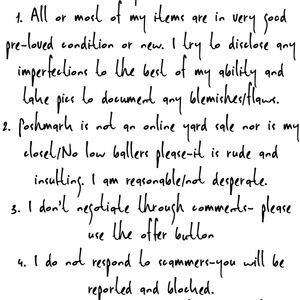 1. All or most of my items are in very good
pre-loved condition or new. I try to disclose any
imperfections to the best of my ability and
take pics to document any blemishes/flaws.
2. Poshmark is not an online yard sale nor is my
closet/No low ballers please-it is rude and
insulting. I am reasonable/not desperate.
3. I don't negotiate through comments- please
use the offer button
4. I do not respond to scammers-you will be
reported and blocked.